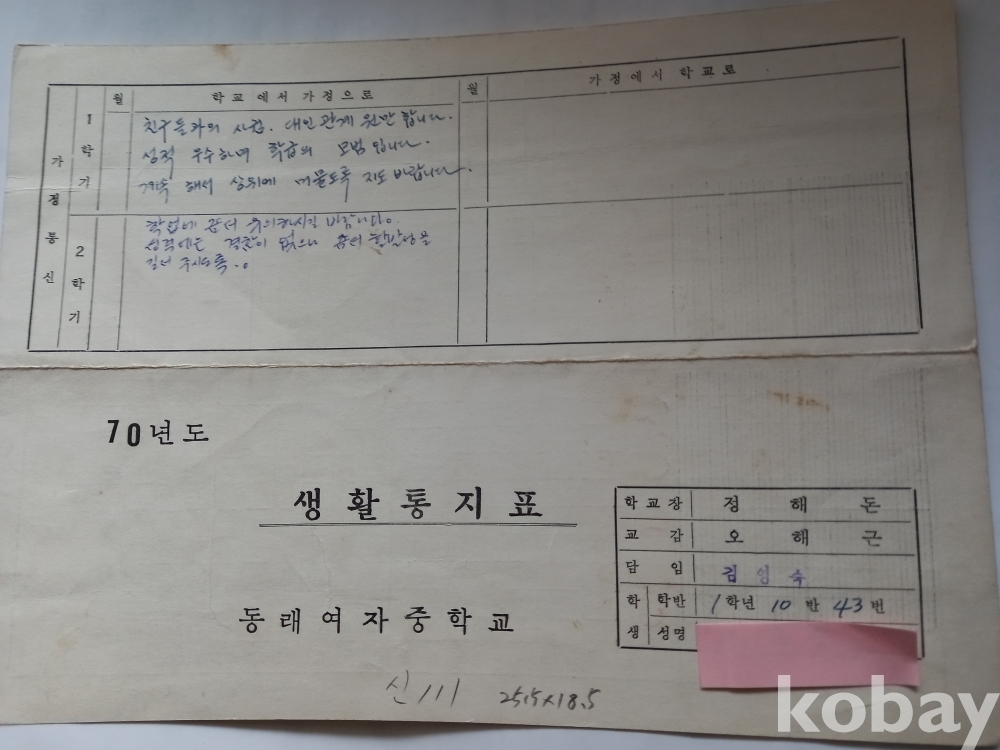 월 학교에서 가정으로 월 가정에서 학교로
가정통신
1학기
친구들과의 사귐. 대인관계 원만 합니다.
성적 우수하며 학급의 모범 입니다.
계속 해서 상위에 머물도록 지도 바랍니다.
2학기
학업에 좀더 유의하시길 바랍니다.
성적에는 결함이 없으나 좀더
길러 주시도록.
70년도
생활통지표
동래여자중학교
학교장 정해돈
교감 오해근
담임 김영숙
학생 학반 1학년 10반 43번
성명
신111 25.5x18.5
kobay